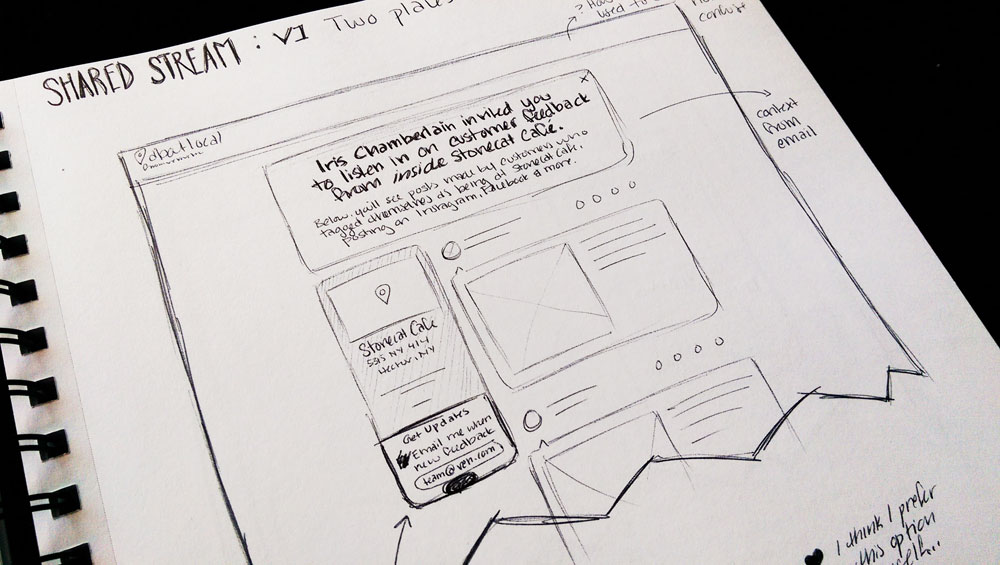 SHARED STREAM : V1 Two places
? How
used to
context
context
from
email
abatlocal
x
Iris Chamberlain invited you
to listen in on customer feedback
from inside Stonecat Café.
Below, you'll see posts made by customers who
tagged themselves as being at Stonecat Cafe,
posting on Instagram, Facebook & more.
Stonecat Cafe
5315 NY 414
Hector, NY
Get updates
Email me when
new feedback
I think I prefer
this option